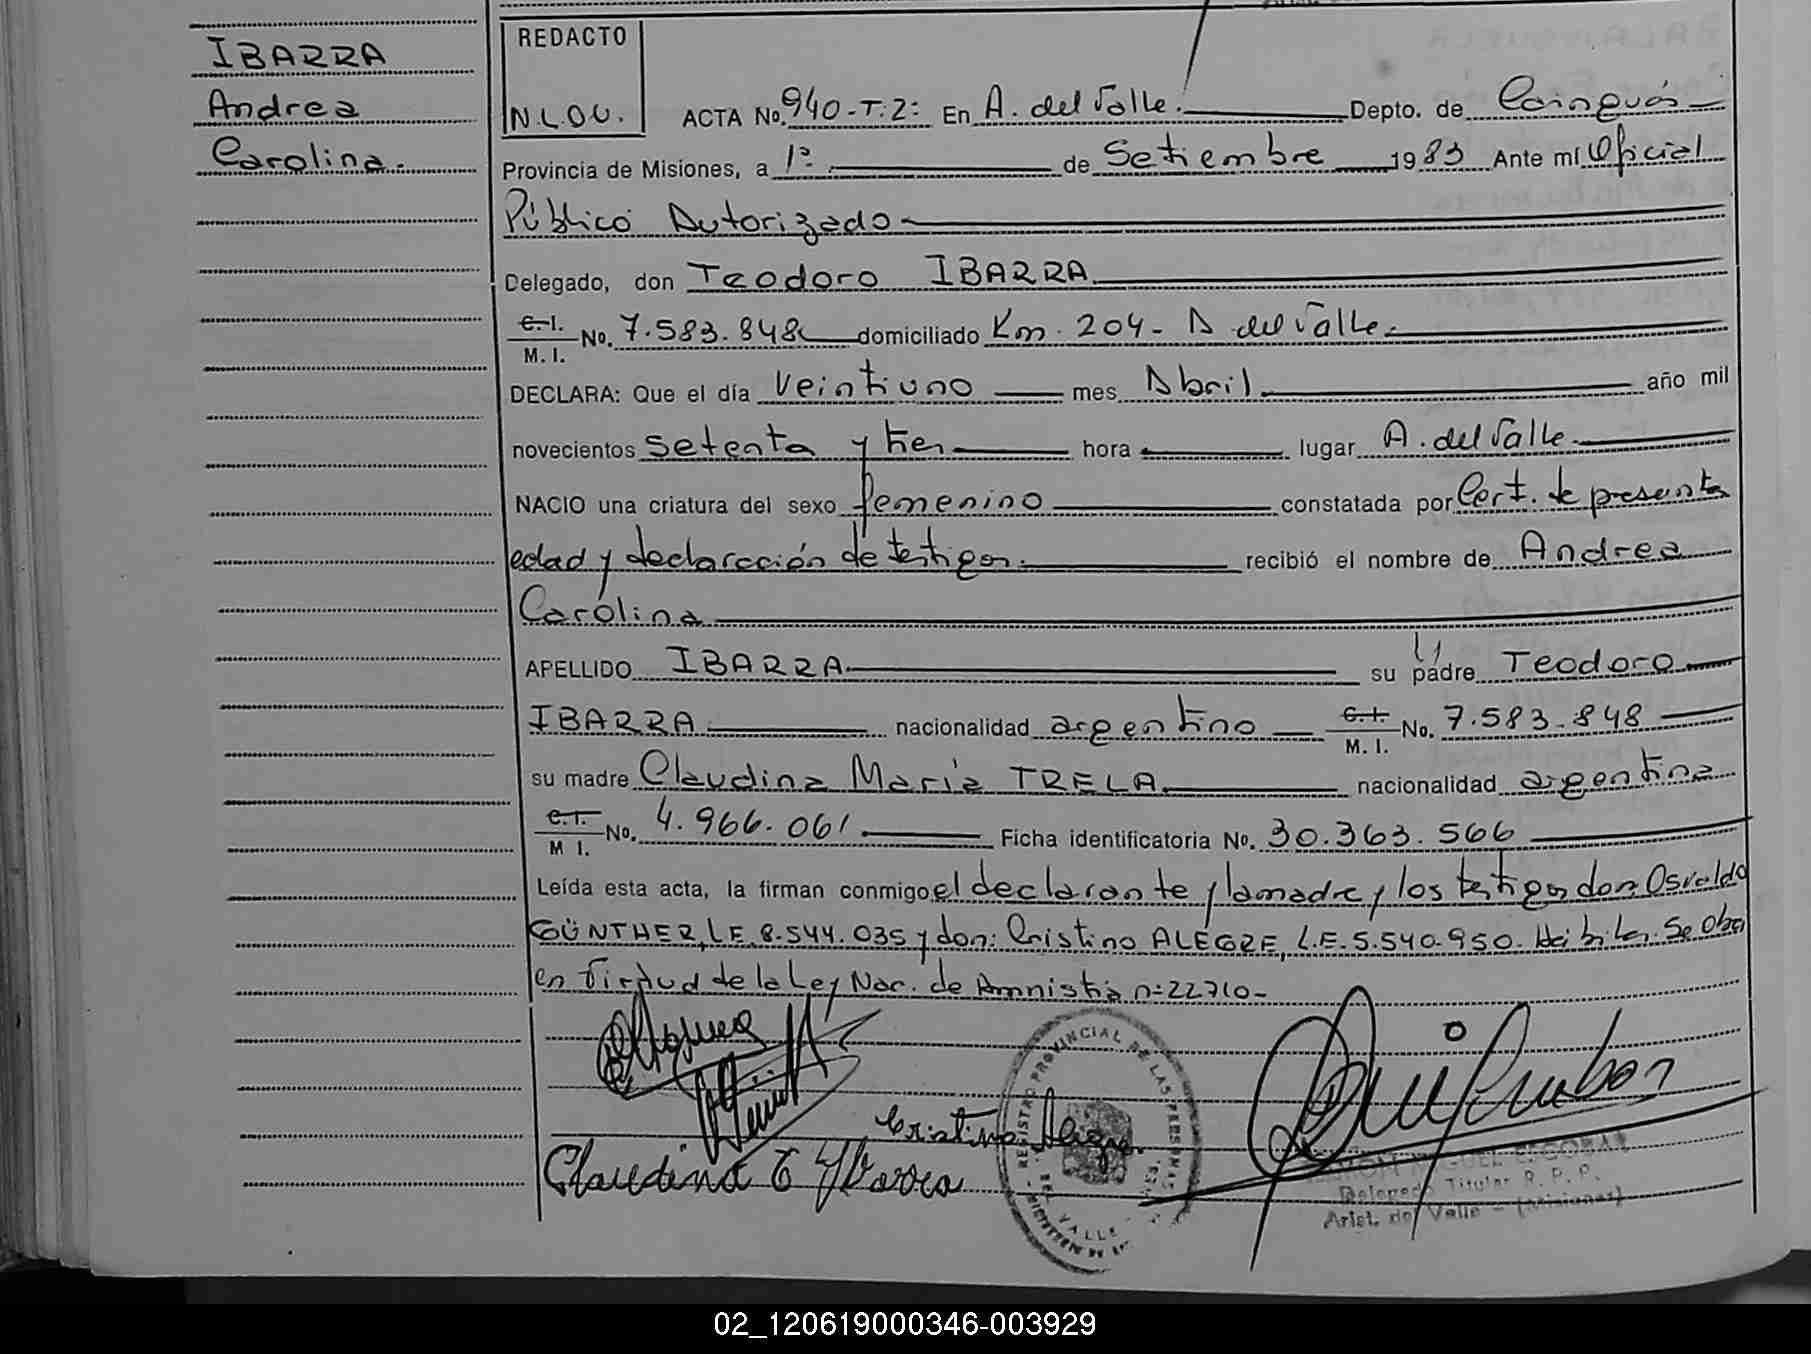 IBARRA
Andrea
Carolina.
REDACTO
N.L.O.U.
ACTA No. 940-T:2: En A. del Valle. Depto. de Cainguás
Provincia de Misiones, a 1º. de Setiembre 1983 Ante mí Oficial
Público Autorizado
Delegado, don Teodoro IBARRA
C. I.
M. I. No. 7.583.848 domiciliado Km. 204- A del Valle.
DECLARA: Que el día veintiuno mes Abril año mil
novecientos setenta y tres hora lugar A. del Valle
NACIO una criatura del sexo femenino constatada por Cert. de presunta
edad y declaración de testigos. recibió el nombre de Andrea
Carolina
APELLIDO IBARRA su padre Teodoro
IBARRA nacionalidad argentino C. I.
M. I. No. 7.583.848
su madre Claudina María TRELA nacionalidad argentina
C. I.
M I. No. 4.966.061 Ficha identificatoria No. 30.363.566
Leída esta acta, la firman conmigo el declarante y la madre y los testigos don: Osvaldo
GÜNTHER, L.E. 8.544.035 y don: Cristino ALEGRE, L.E. 5.540.950. Hábiles. Se obra
en virtud de la Ley Nac. de Amnistía nº 22710-
Cristino Alegre.
Claudina T Ybarra
REGISTRO PROVINCIAL DE LAS PERSONAS
DEL VALLE
MIGUEL ESCOBAR
Delegado Titular R. P. P.
Arist. del Valle - (Misiones)
02_120619000346-003929